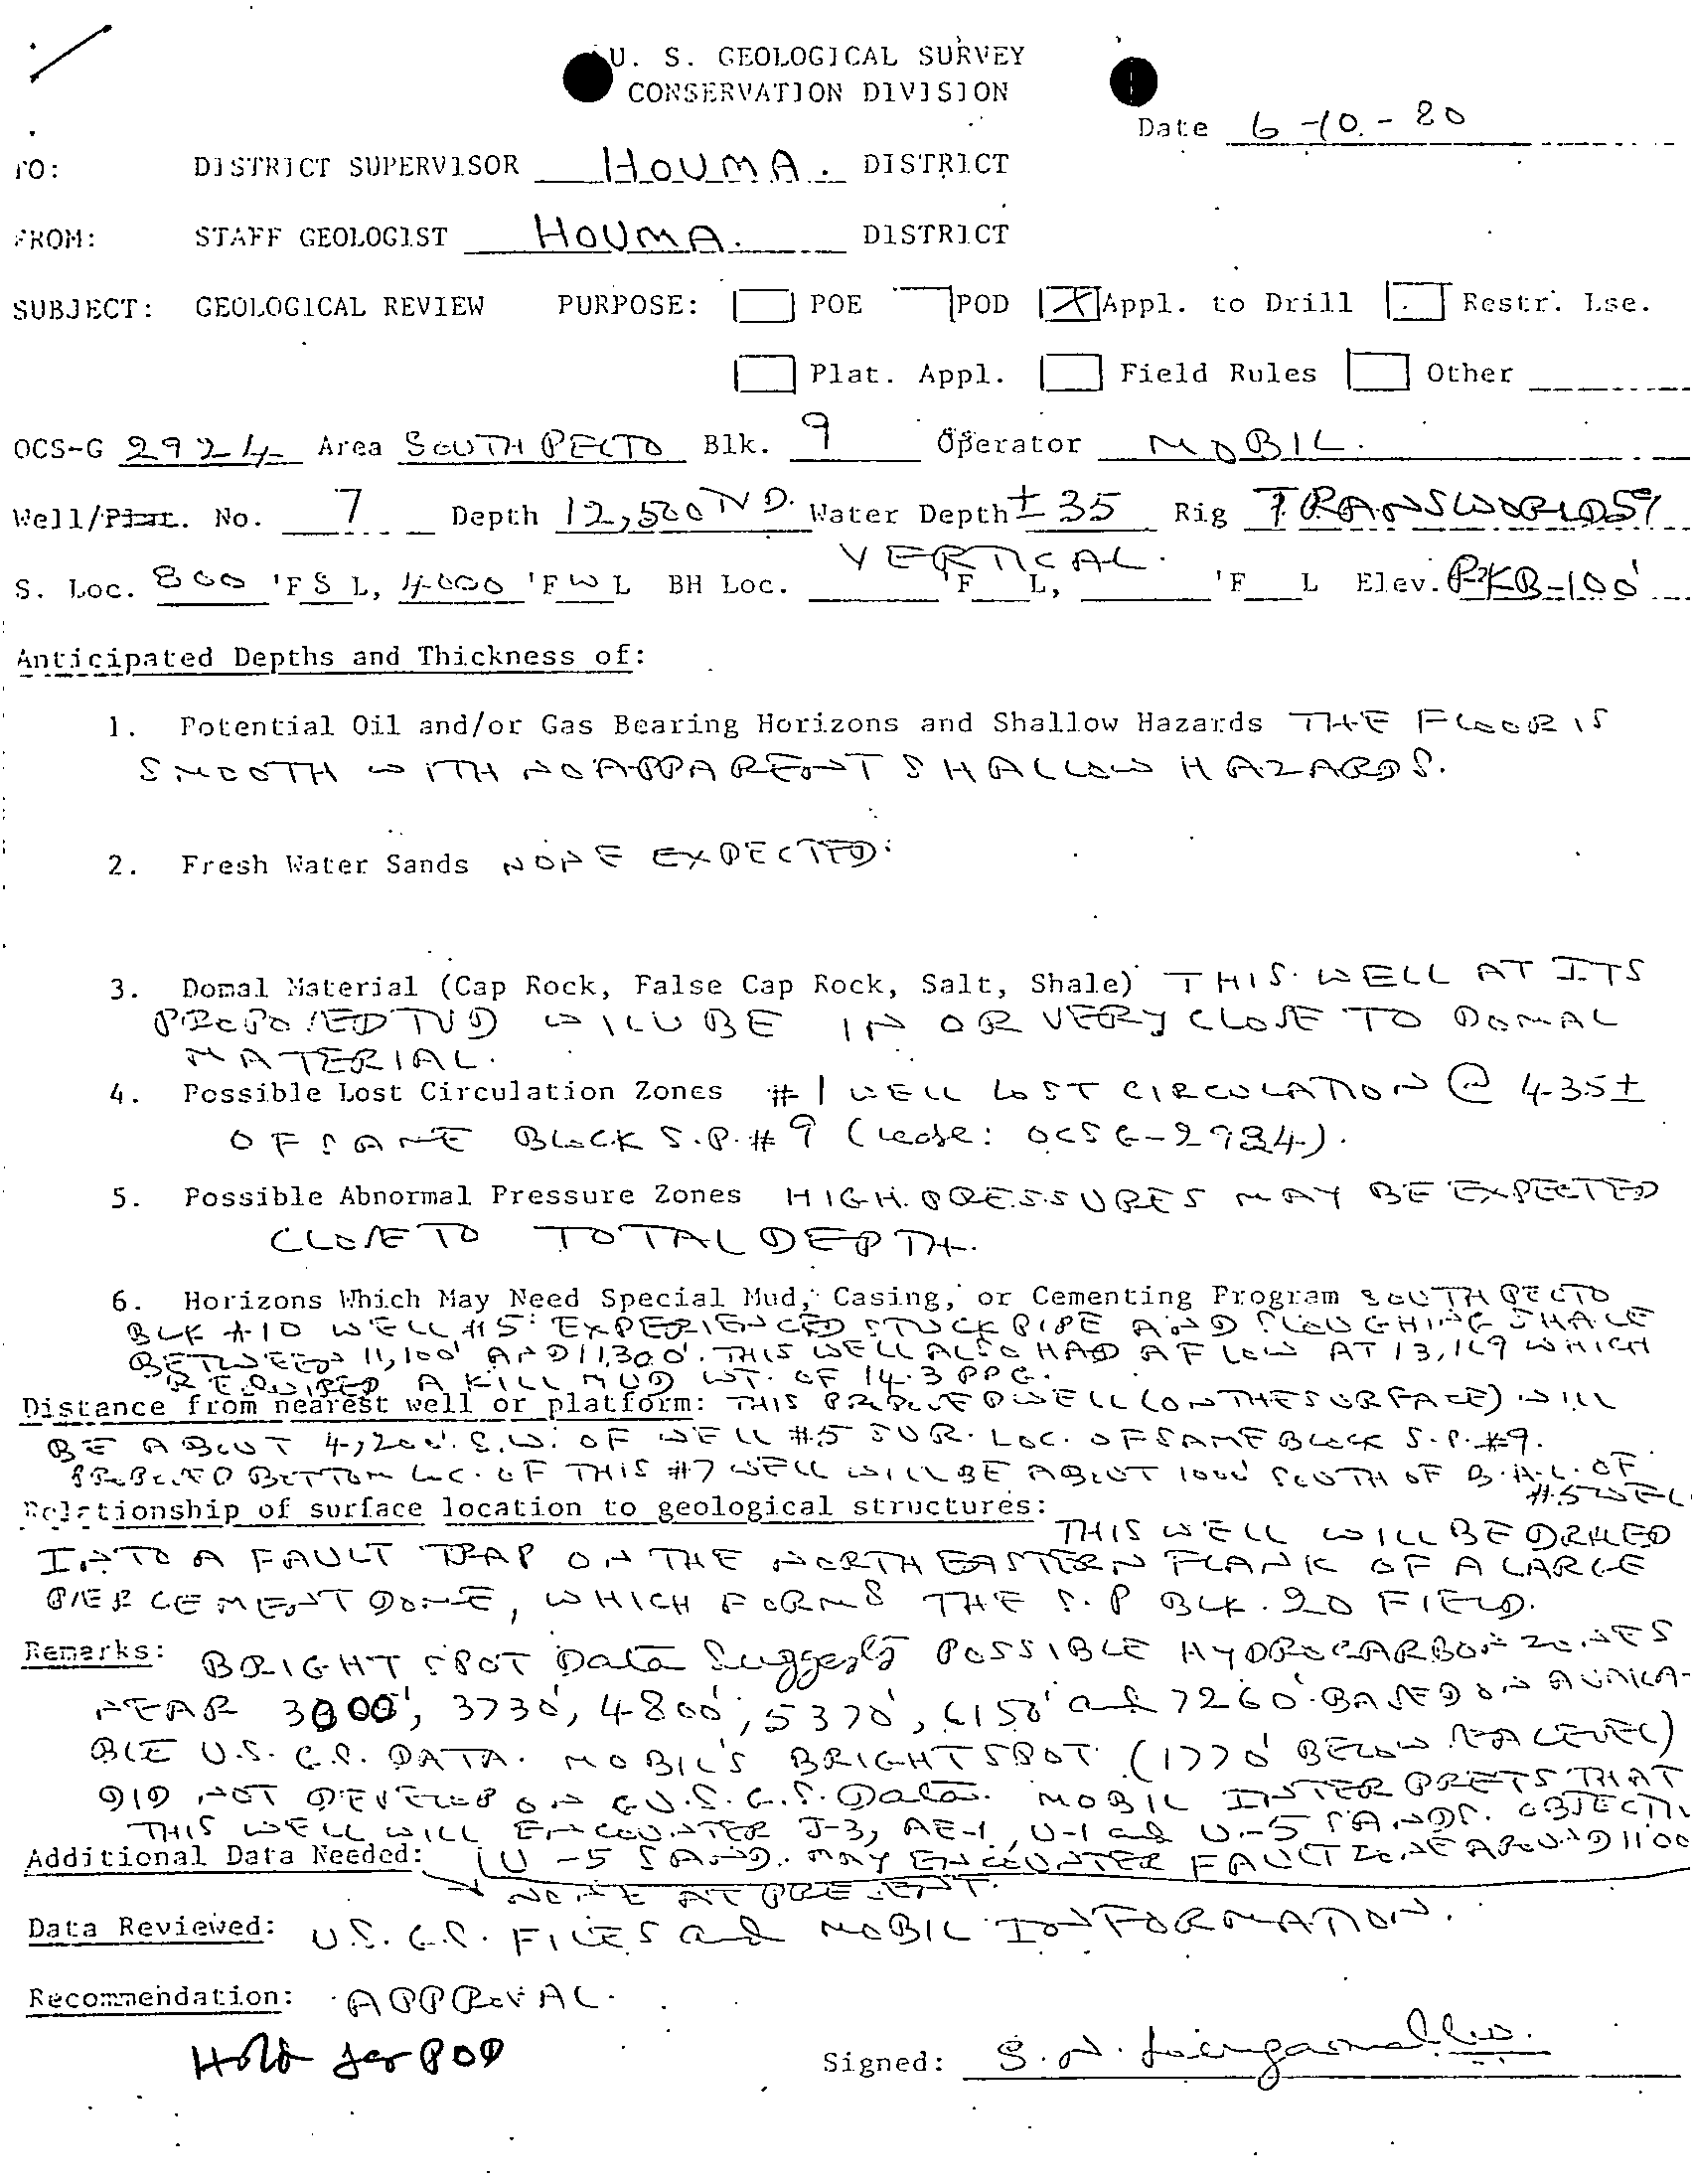 U. S. GEOLOGICAL SURVEY
CONSERVATION DIVISION
Date 6-10-80
TO: DISTRICT SUPERVISOR HOUMA. DISTRICT
FROM: STAFF GEOLOGIST HOUMA. DISTRICT
SUBJECT: GEOLOGICAL REVIEW PURPOSE: POE POD X Appl. to Drill Restr. Lse.
Plat. Appl. Field Rules Other
OCS-G 2924 Area SOUTH PELTO Blk. 9 Operator MOBIL.
Well/Plat. No. 7 Depth 12,500 TVD. Water Depth ± 35 Rig TRANSWORLD 59
S. Loc. 800 'F S L, 4000 'F W L BH Loc. VERTICAL. 'F L, 'F L Elev. RKB-100'
Anticipated Depths and Thickness of:
1. Potential Oil and/or Gas Bearing Horizons and Shallow Hazards THE FLOOR IS
SMOOTH WITH NO APPARENT SHALLOW HAZARDS.
2. Fresh Water Sands NONE EXPECTED.
3. Domal Material (Cap Rock, False Cap Rock, Salt, Shale) THIS WELL AT ITS
PROPOSED TVD WILL BE IN OR VERY CLOSE TO DOMAL
MATERIAL.
4. Possible Lost Circulation Zones #1 WELL LOST CIRCULATION @ 435±
OF SAME BLOCK S.P.#9 (Lease: OCSG-2924).
5. Possible Abnormal Pressure Zones HIGH PRESSURES MAY BE EXPECTED
CLOSE TO TOTAL DEPTH.
6. Horizons Which May Need Special Mud, Casing, or Cementing Program SOUTH PELTO
BLK #10 WELL #5 EXPERIENCED STUCK PIPE AND SLOUGHING SHALE
BETWEEN 11,100' AND 11,300'. THIS WELL ALSO HAD A FLOW AT 13,169 WHICH
REQUIRED A KILL MUD WT. OF 14.3 PPG.
Distance from nearest well or platform: THIS PROPOSED WELL (ON THE SURFACE) WILL
BE ABOUT 4,200' S.W. OF WELL #5 SUR. LOC. OF SAME BLOCK S.P.#9.
PROPOSED BOTTOM LOC. OF THIS #7 WELL WILL BE ABOUT 1000' SOUTH OF B.H.L. OF
#5 WELL
Relationship of surface location to geological structures:
THIS WELL WILL BE DRILLED
INTO A FAULT TRAP ON THE NORTH EASTERN FLANK OF A LARGE
PIERCEMENT DOME, WHICH FORMS THE S.P BLK. 20 FIELD.
Remarks: BRIGHT SPOT Data Suggests POSSIBLE HYDROCARBON ZONES
NEAR 3000', 3730', 4800', 5370', 6150' and 7260'. BASED ON AVAILA-
BLE U.S.G.S. DATA. MOBIL'S BRIGHT SPOT (1770' BELOW SEA LEVEL)
DID NOT DEVELOP ON U.S.G.S. Data. MOBIL INTERPRETS THAT
THIS WELL WILL ENCOUNTER J-3, AE-1, U-1 and U-5 SANDS. OBJECTIV
Additional Data Needed: (U-5 SAND. MAY ENCOUNTER FAULT ZONE AROUND 1100
NONE AT PRESENT.
Data Reviewed: U.S.G.S. FILES and MOBIL INFORMATION.
Recommendation: APPROVAL.
Hold for POD
Signed: S. N.